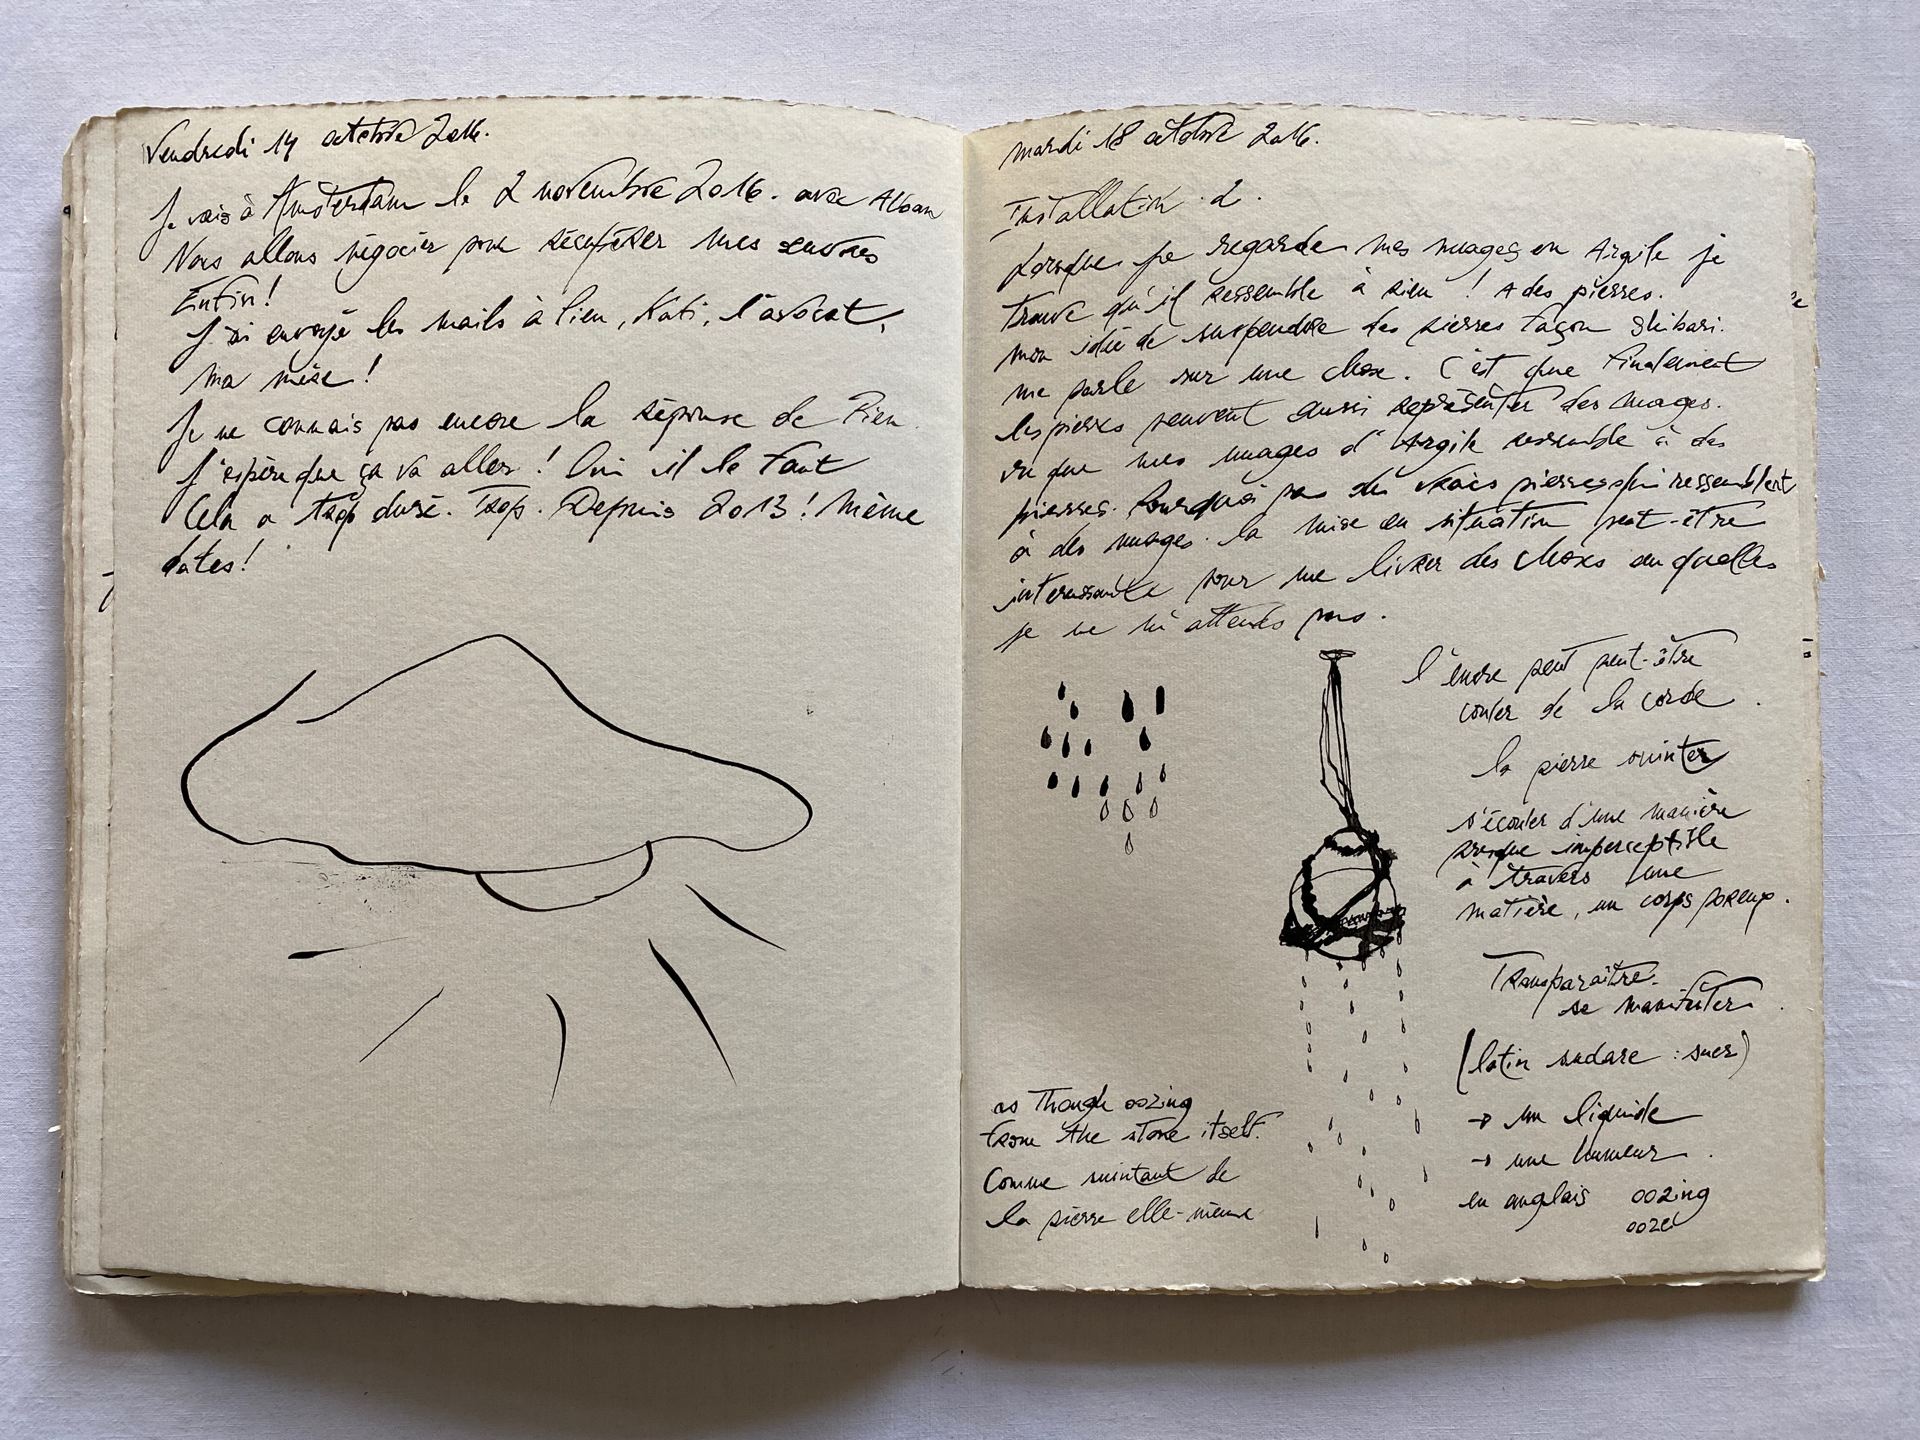 Vendredi 14 octobre 2016.
Je vais à Amsterdam le 2 novembre 2016. avec Alban
Nous allons négocier pour récupérer mes œuvres
Enfin!
J'ai envoyé les mails à lien, Kati, l'avocat,
ma mère!
Je ne connais pas encore la réponse de Rien
J'espère que ça va aller! Oui il le faut
Cela a trop duré. Trop. Depuis 2013! Même
dates!
mardi 18 octobre 2016.
Installation 2.
Lorsque je regarde mes nuages en Argile je
trouve qu'il ressemble à rien! A des pierres.
mon idée de suspendre des pierres façon shibari.
me parle sur une chose. C'est que finalement
les pierres peuvent aussi représenter des nuages.
vu que mes nuages d'Argile ressemble à des
pierres. Pourquoi pas des vraies pierres qui ressemblent
à des nuages. la mise en situation peut-être
interessante pour me livrer des choses auquelles
je ne m'attends pas.
l'encre peut peut-être
couler de la corde.
la pierre suinter
s'écouler d'une manière
presque imperceptible
à travers une
matière, un corps poreux.
Transparaître.
se manifester.
(latin sudare : suer)
→ un liquide
→ une humeur.
en anglais oozing
ooze
as though oozing
from the stone itself.
Comme suintant de
la pierre elle-même